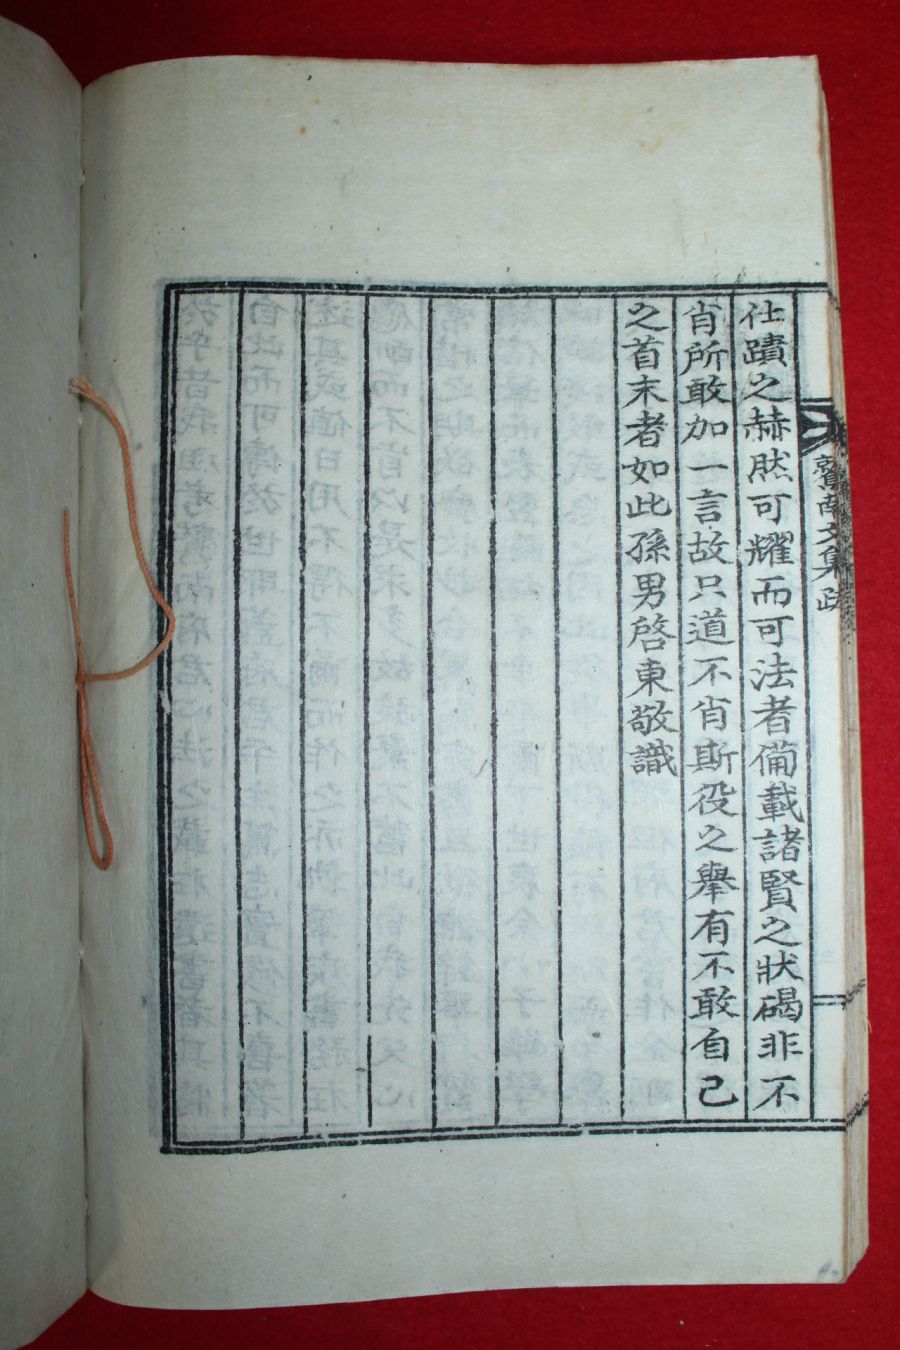 仕蹟之赫然可耀而可法者備載諸賢之狀碣非不
肖所敢加一言故只道不肖斯役之舉有不敢自已
之首末者如此孫男啓東敬識
文集